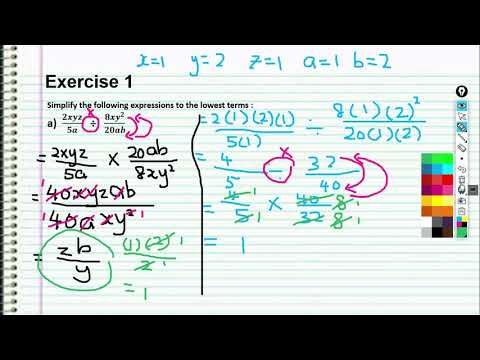 x=1 y=2 z=1 a=1 b=2
Exercise 1
Simplify the following expressions to the lowest terms :
a) 2xyz/5a ÷ 8xy²/20ab
x
= 2xyz/5a × 20ab/8xy²
= 40xyzab/40axy²
= zb/y
(1)(2)/2
= 1
= 2(1)(2)(1)/5(1) ÷ 8(1)(2)²/20(1)(2)
x
= 4/5 ÷ 32/40
= 4/5 × 40/32 8 1
8 1
= 1